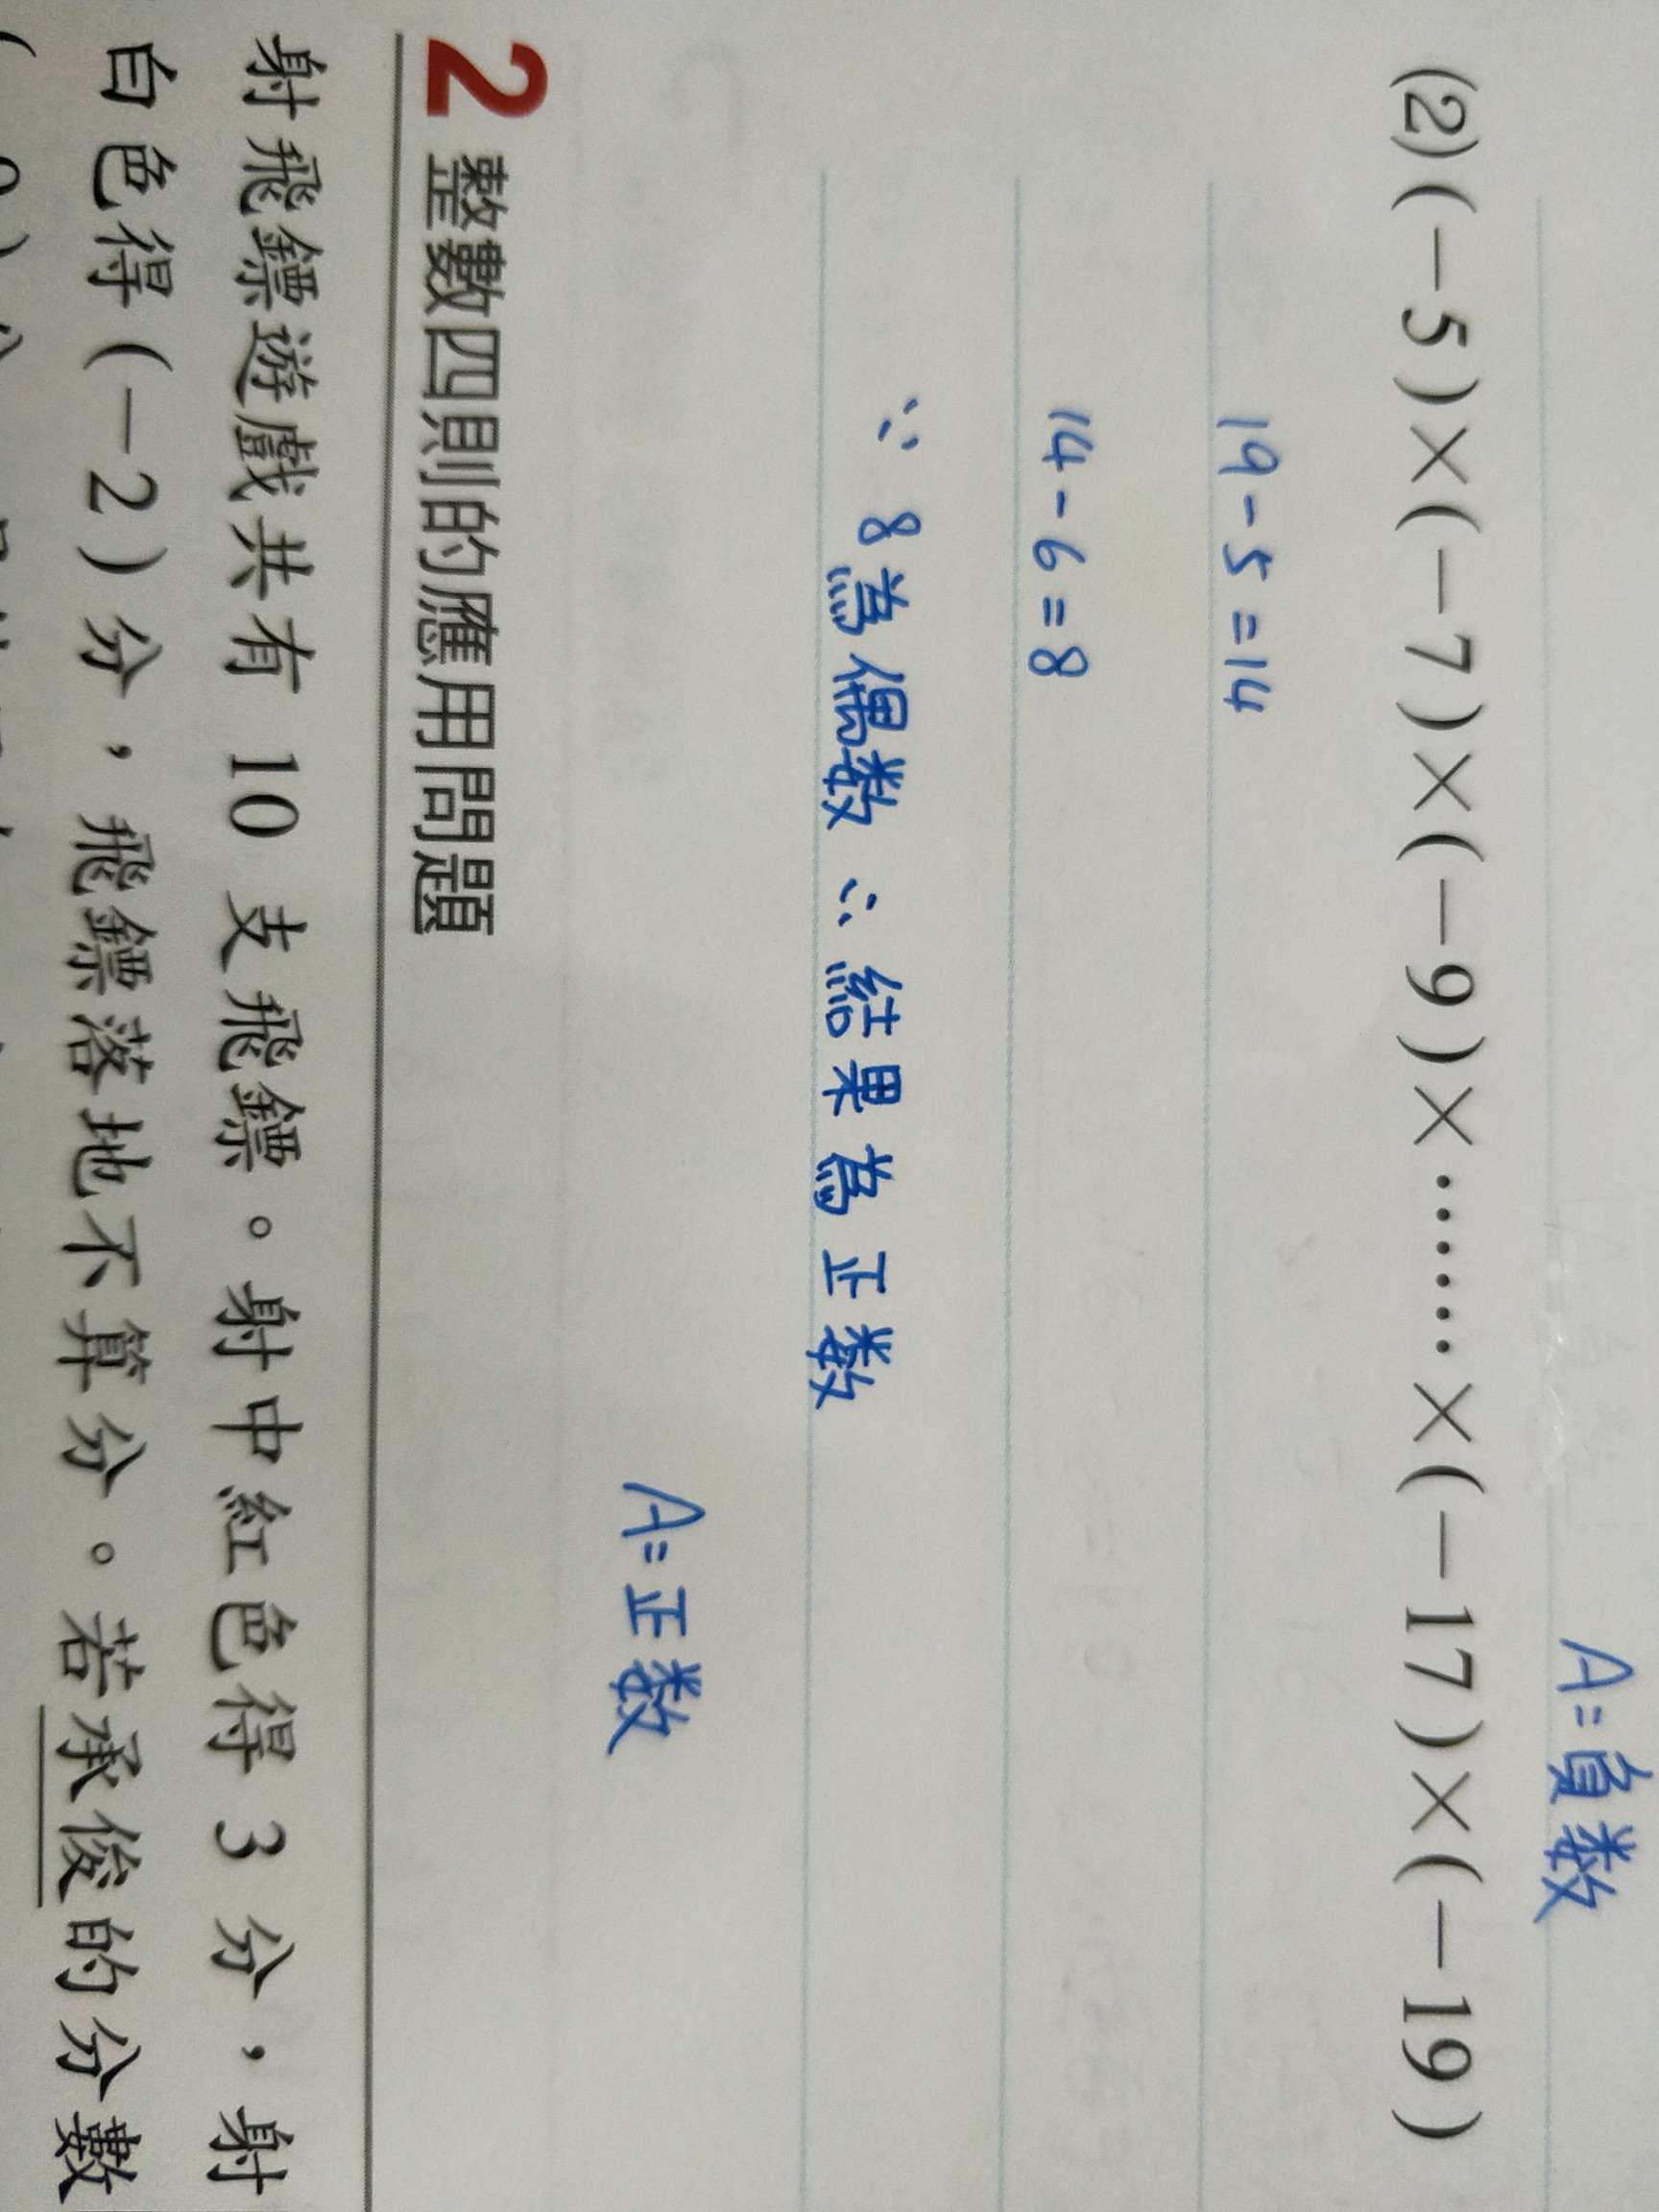 A=負数
(2)(−5)×(−7)×(−9)×……×(−17)×(−19)
19-5=14
14-6=8
∵8為偶数∴結果為正数
A=正数
2 整數四則的應用問題
射飛鏢遊戲共有 10 支飛鏢。射中紅色得 3 分，射
白色得(−2)分，飛鏢落地不算分。若承俊的分數